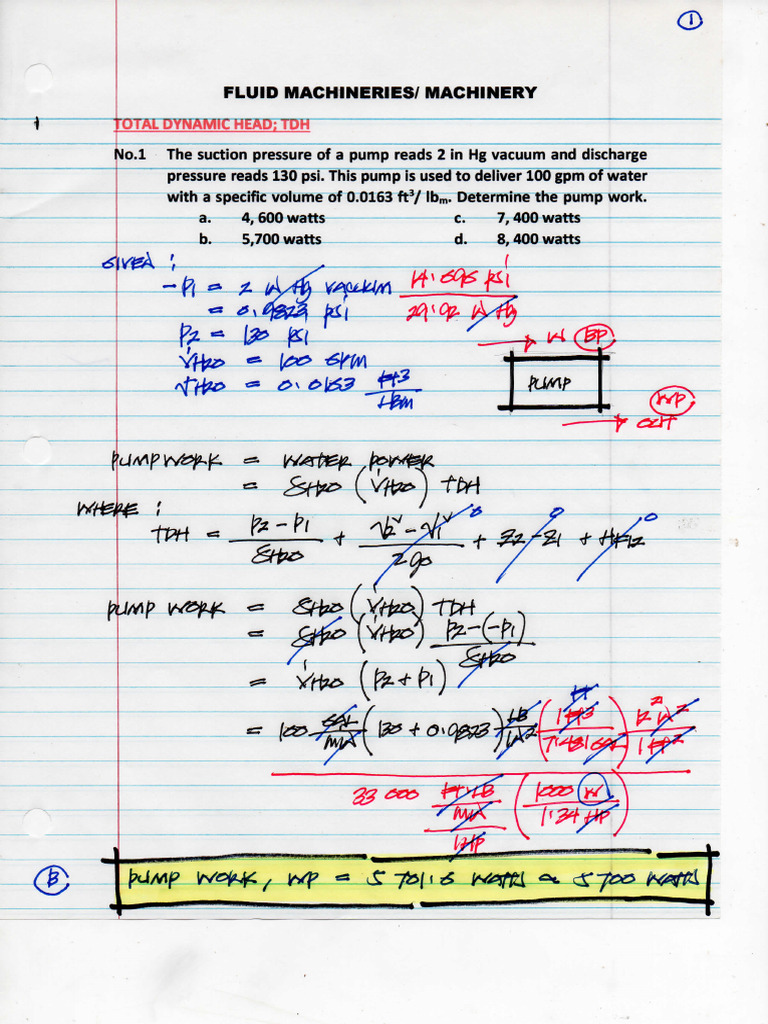 1
FLUID MACHINERIES/ MACHINERY
1
TOTAL DYNAMIC HEAD; TDH
No.1 The suction pressure of a pump reads 2 in Hg vacuum and discharge
pressure reads 130 psi. This pump is used to deliver 100 gpm of water
with a specific volume of 0.0163 ft³/ lbₘ. Determine the pump work.
a. 4, 600 watts c. 7, 400 watts
b. 5,700 watts d. 8, 400 watts
GIVEN :
-P1 = 2 IN Hg VACUUM 14.696 psi / 29.92 IN Hg
= 0.9823 psi
P2 = 130 psi
IN BP
V̇H2O = 100 GPM
VH2O = 0.0163 ft3 / lbm
PUMP
WP
OUT
PUMP WORK = WATER POWER
= γH2O (V̇H2O) TDH
WHERE :
TDH = P2 - P1 / γH2O + V2² - V1² / 2go + Z2 - Z1 + Hf12
0 0 0
PUMP WORK = γH2O (V̇H2O) TDH
= γH2O (V̇H2O) P2 - (-P1) / γH2O
= V̇H2O (P2 + P1)
= 100 GAL / MIN (130 + 0.9823) LB / IN2 (1 ft3 / 7.481 GAL) 12² IN² / 1 ft²
ft
33 000 ft LB / MIN / 1 HP (1000 W / 1.34 HP)
B
PUMP WORK, WP = 5 701.6 WATTS ≈ 5 700 WATTS